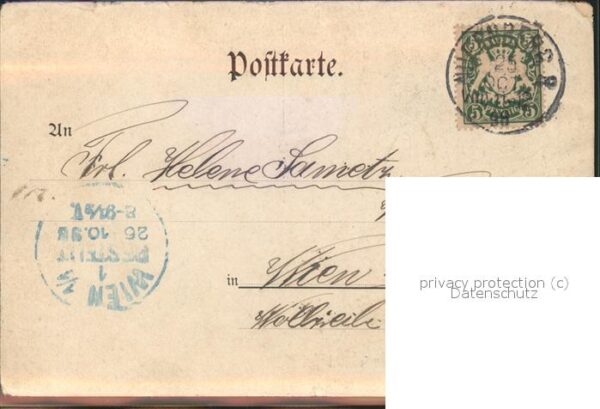 Postkarte.
BAYERN
25
OCT
98
An
Frl. Helene Sametz
in Wien
Wollzeile
WIEN 1/1
1
BESTELLT
26.10.98
8-9½V.
privacy protection (c)
Datenschutz